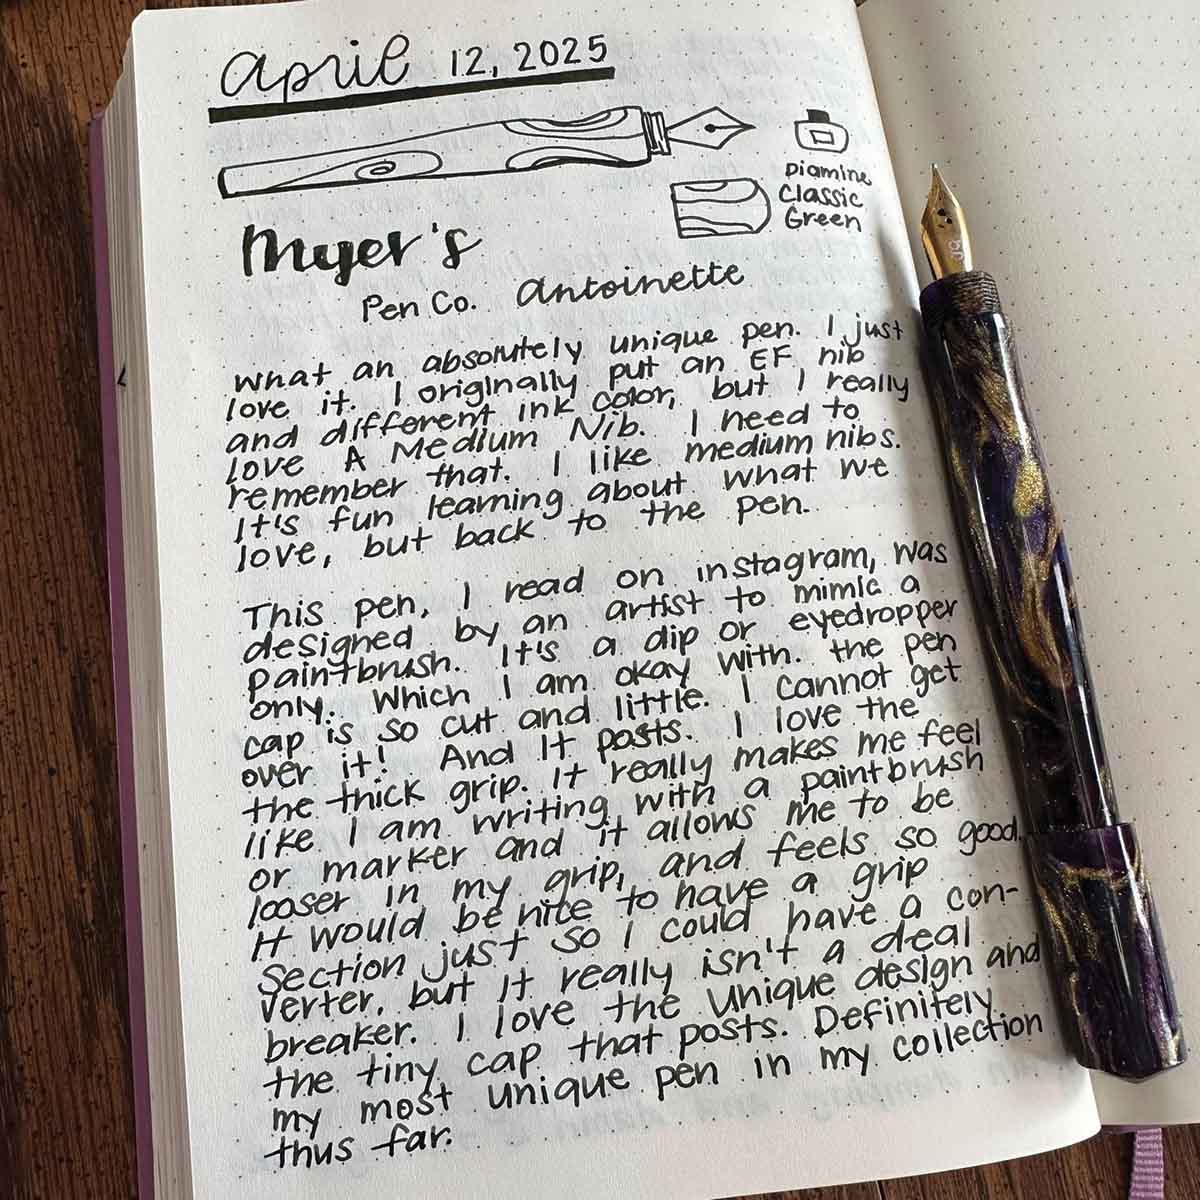 April 12, 2025
Diamine
Classic
Green
Myer's
Pen Co. Antoinette
What an absolutely unique pen. I just
love it. I originally put an EF nib
and different ink color, but I really
love A Medium Nib. I need to
remember that. I like medium nibs.
It's fun learning about what we
love, but back to the pen.
This pen, I read on instagram, was
designed by an artist to mimic a
paintbrush. It's a dip or eyedropper
only. Which I am okay with. the pen
cap is so cut and little. I cannot get
over it! And It posts. I love the
the thick grip. It really makes me feel
like I am writing with a paintbrush
or marker and it allows me to be
looser in my grip, and feels so good.
It would be nice to have a grip
section just so I could have a con-
verter, but it really isn't a deal
breaker. I love the unique design and
the tiny cap that posts. Definitely
my most unique pen in my collection
thus far.